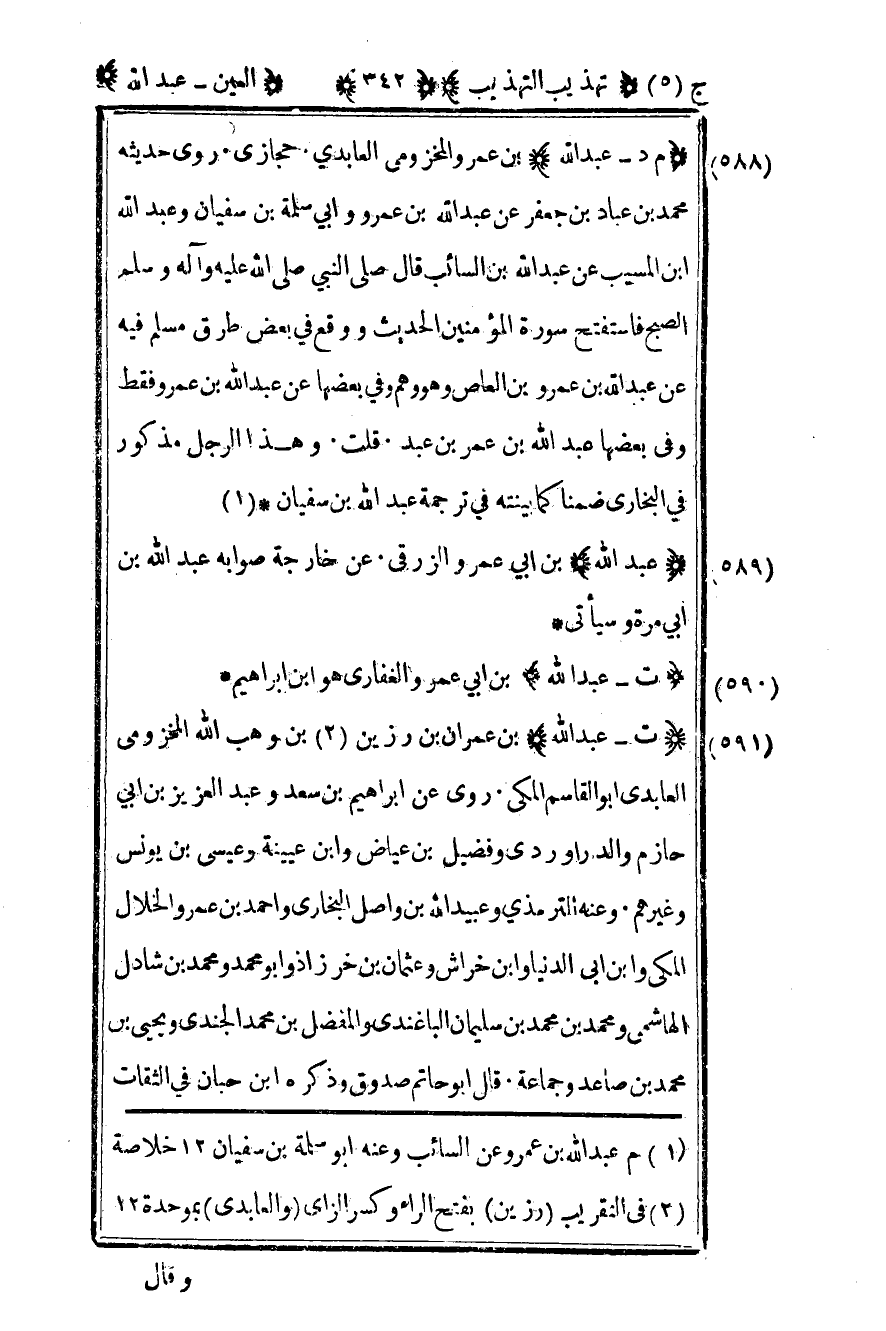 ج (٥) ﴿ تهذيب التهذيب ﴾ ﴿ ٣٤٢ ﴾ ﴿ العين ـ عبد الله ﴾
(٥٨٨) ﴿ م د ـ عبدالله ﴾ بن عمرو المخزومى العابدي · حجازى · روى حديثه
محمد بن عباد بن جعفر عن عبدالله بن عمرو و ابي سلمة بن سفيان وعبد الله
ابن المسيب عن عبدالله بن السائب قال صلى النبي صلى الله عليه وآله و سلم
الصبح فاستفتح سورة المؤمنين الحديث و وقع في بعض طرق مسلم فيه
عن عبدالله بن عمرو بن العاص وهو وهم وفي بعضها عن عبدالله بن عمرو فقط
وفى بعضها عبد الله بن عمر بن عبد · قلت · و هــذا الرجل مذكور
في البخارى ضمنا كما بينته في ترجمة عبد الله بن سفيان * (١)
(٥٨٩) ﴿ عبد الله ﴾ بن ابي عمرو الزرقى · عن خارجة صوابه عبد الله بن
ابي مرة و سيأتى *
(٥٩٠) ﴿ ت ـ عبدالله ﴾ بن ابي عمرو الغفارى هو ابن ابراهيم *
(٥٩١) ﴿ ت ـ عبدالله ﴾ بن عمران بن رزين (٢) بن وهب الله المخزومى
العابدى ابو القاسم المكى · روى عن ابراهيم بن سعد و عبد العزيز بن ابي
حازم والدراوردى وفضيل بن عياض وابن عيينة وعيسى بن يونس
وغيرهم · وعنه الترمذي وعبيدالله بن واصل البخارى واحمد بن عمرو الخلال
المكى وابن ابى الدنيا وابن خراش وعثمان بن خرزاذ وابو محمد ومحمد بن شادل
الهاشمى ومحمد بن محمد بن سليمان الباغندى والمفضل بن محمد الجندى ويحيى بن
محمد بن صاعد وجماعة · قال ابو حاتم صدوق وذكره ابن حبان في الثقات
(١) م عبدالله بن عمرو عن السائب وعنه ابو سلمة بن سفيان ١٢ خلاصة
(٢) فى التقريب (رزين) بفتح الراء وكسر الزاى (والعابدى) بموحدة ١٢
و قال